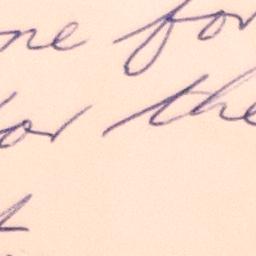 ne for
or the